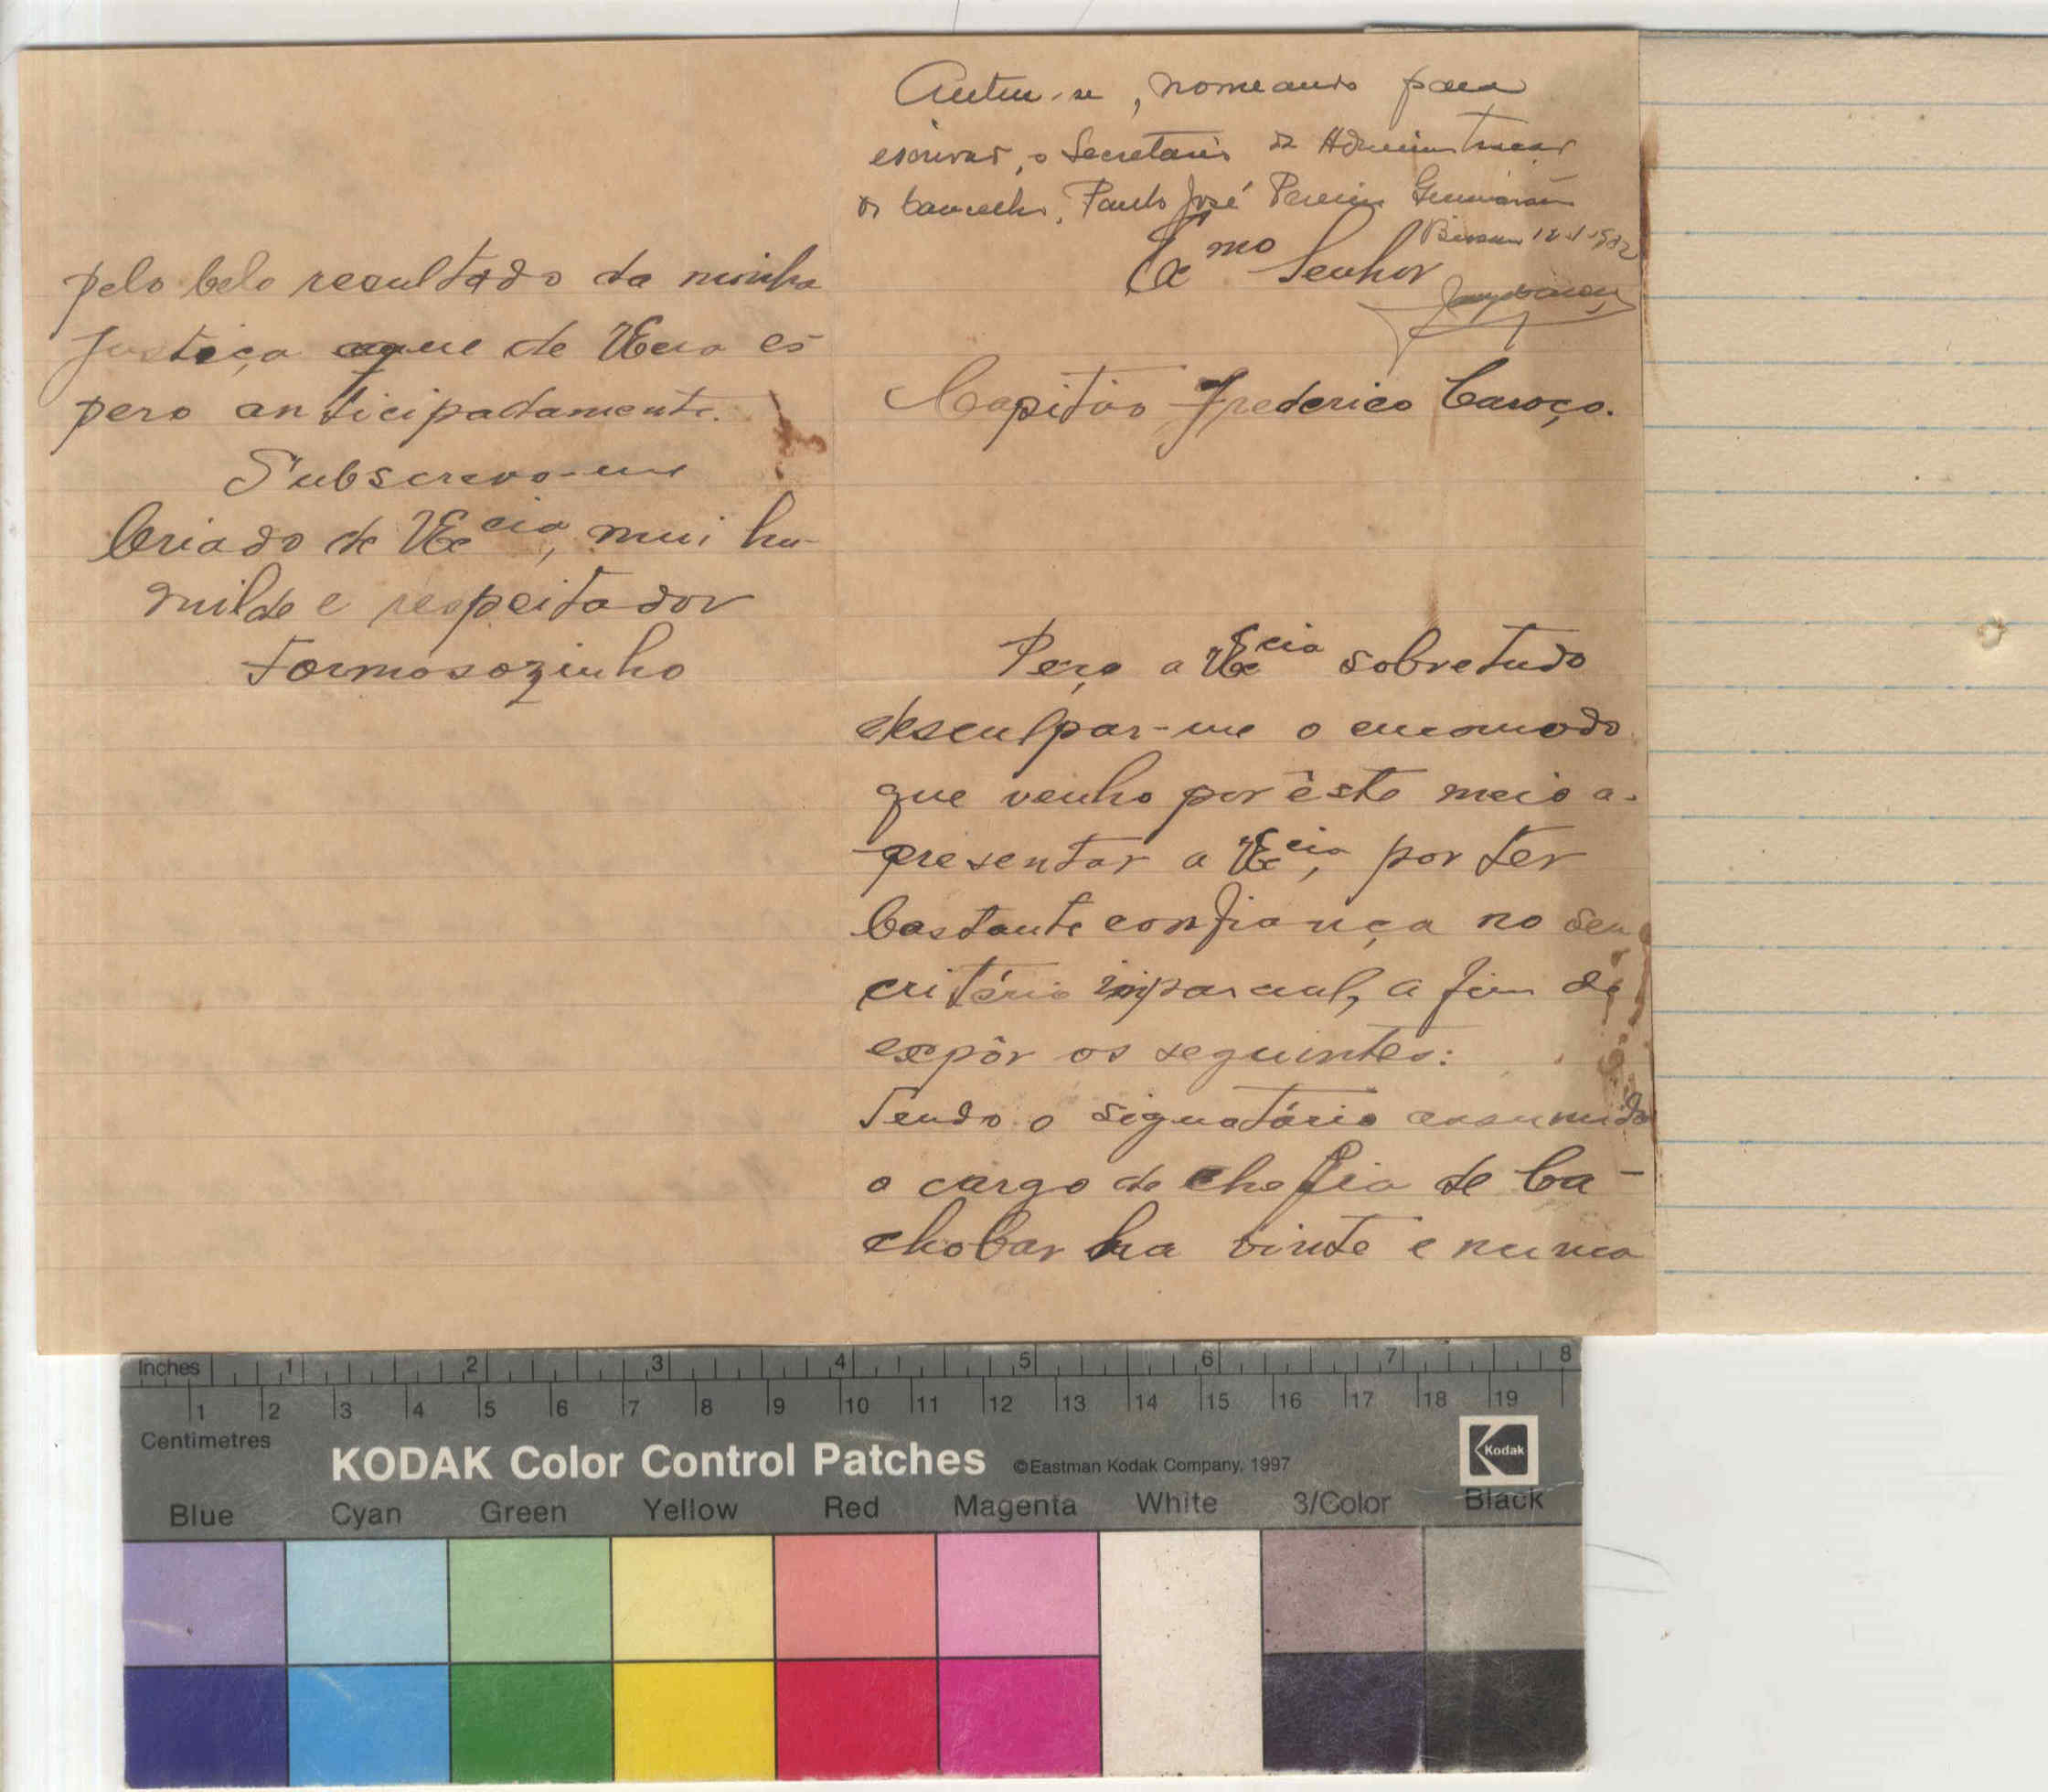 Autue-se, nomeando para
escrivão, o Secretário da Administração
do Concelho, Paulo José Pereira Guimarães
Bissau 12-1-932
Exmo Senhor
Capitão Frederico Caroço.
Peço a VExcia sobretudo
desculpar-me o encomodo
que venho por êste meio a-
presentar a VExcia, por ter
bastante confiança no seu
critério imparcial, a fim de
expôr os seguintes:
Tendo o signatário assumido
o cargo de chefia de Ca-
chobar ha vinte e numa
pelo belo resultado da minha
justiça que de VExcia es-
pero anticipadamente.
Subscrevo-me
Criado de VExcia, mui hu-
milde e respeitador
Formosozinho
Inches 1 2 3 4 5 6 7 8
1 2 3 4 5 6 7 8 9 10 11 12 13 14 15 16 17 18 19
Centimetres
KODAK Color Control Patches ©Eastman Kodak Company, 1997 Kodak
Blue Cyan Green Yellow Red Magenta White 3/Color Black